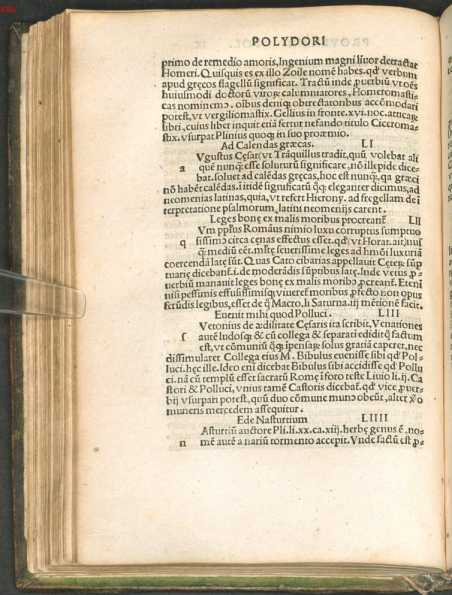 POLYDORI
primo de remedio amoris, Ingenium magni liuor detractat
Homeri. Quisquis es ex illo Zoile nomē habes. qđ verbum
apud gręcos flagellū significat. Tractū inde ꝓuerbiū vt oēs
huiusmodi doctorū virorꝫ calumniatores, Homeromasti
cas nominemꝰ. oibus deniqꝫ obtrectatoribus accōmodari
potest, vt vergiliomastix. Gellius in fronte. xvi. noc. atticaꝝ
libri, cuius liber inquit etiā fertur nefando titulo Ciceroma
stix. vsurpat Plinius quoqꝫ in suo proœmio.
Ad Calendas gręcas. LI
Vgustus Cęsar vt Trāquillus tradit, quū volebat ali
a quē nunqꝫ esse soluturū significare, nō illepide dice
bat. soluet ad calēdas gręcas, hoc est nunqꝫ, qa gręci
nō habēt calēdas. itidē significatū qꝫ eleganter dicimus, ad
neomenias latinas, quia, vt refert Hierony. ad suęellam de i
terpretatione psalmorum, latini neomenijs carent.
Leges bonę ex malis moribus procreantꝰ LII
Vm ppłus Romāus nimio luxu corruptus sumptuo
q sissimꝰ circa cęnas effectus esset. qđ vt Horat. ait, huſ
qꝫ mediū cēt. mltę seuerissimę leges ad hmōi luxuriā
coercendā latę sūt. Quas Cato cibarias appellauit Cęterꝫ sūp
tuarię dicebant. i. de moderādis sūptibus latę. Inde vetus ꝓ
uerbiū manauit leges bonę ex malis moribꝰ ꝓcreant. Eteni
nisi pessimis effusissimisqꝫ viueret moribus, ꝓfecto non opus
fertudis legibus, esset. de q Macro. li Saturna. iij mētionē facit.
Euenit mihi quod Polluci. LIII
Vetonius de ædilitate Cęsaris ita scribit. Venationes
ſ autē ludosqꝫ & cū collega & separati edidit qꝫ factum
est, vt cōmuniū qꝫ ipensaꝝ solus gratiā caperet, nec
dissimularet Collega eius M. Bibulus euenisse sibi qđ Pol
luci. hęc ille. Ideo eni dicebat Bibulus sibi accidisse qđ Pollu
ci. nā cū templū esset sacratū Romę ī foro teste Liuio li. ij. Ca
stori & Polluci, vnius tamē Castoris dicebat. qđ vice ꝓuer
bij vsurpari potest, quū duo cōmune munꝰ obeūt, alter ꝟo
muneris mercedem assequitur.
Ede Nasturtium LIIII
Asturtiū auctore Pli. li. xx. ca. xiij. herbę genus ē. no
n mē autē a nariū tormento accepit. Vnde factū est ꝓ